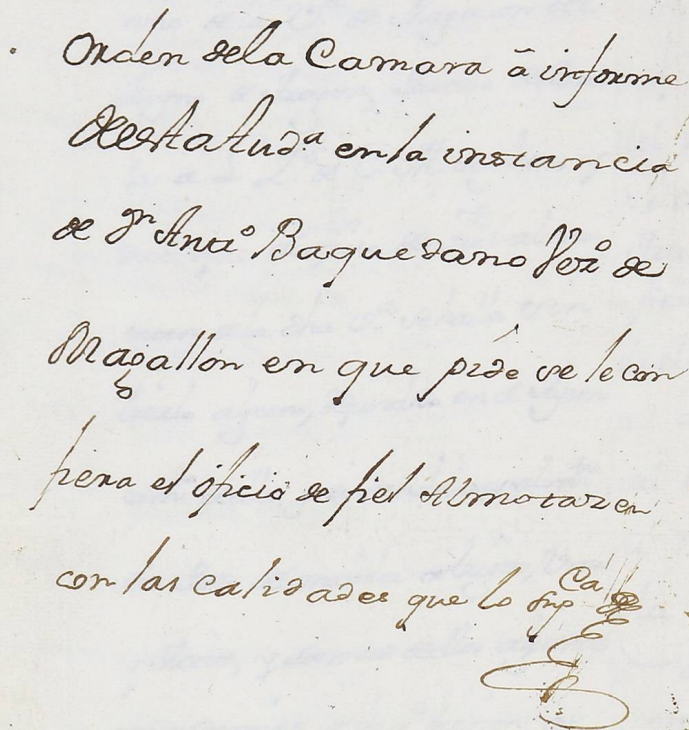 Orden dela Camara â informe
de esta Aud.ª en la instancia
de Dn Antº Baquedano Vezº de
Magallon en que pide se le con
fiera el ofício de fiel Almotazen
con las calidades que lo supca